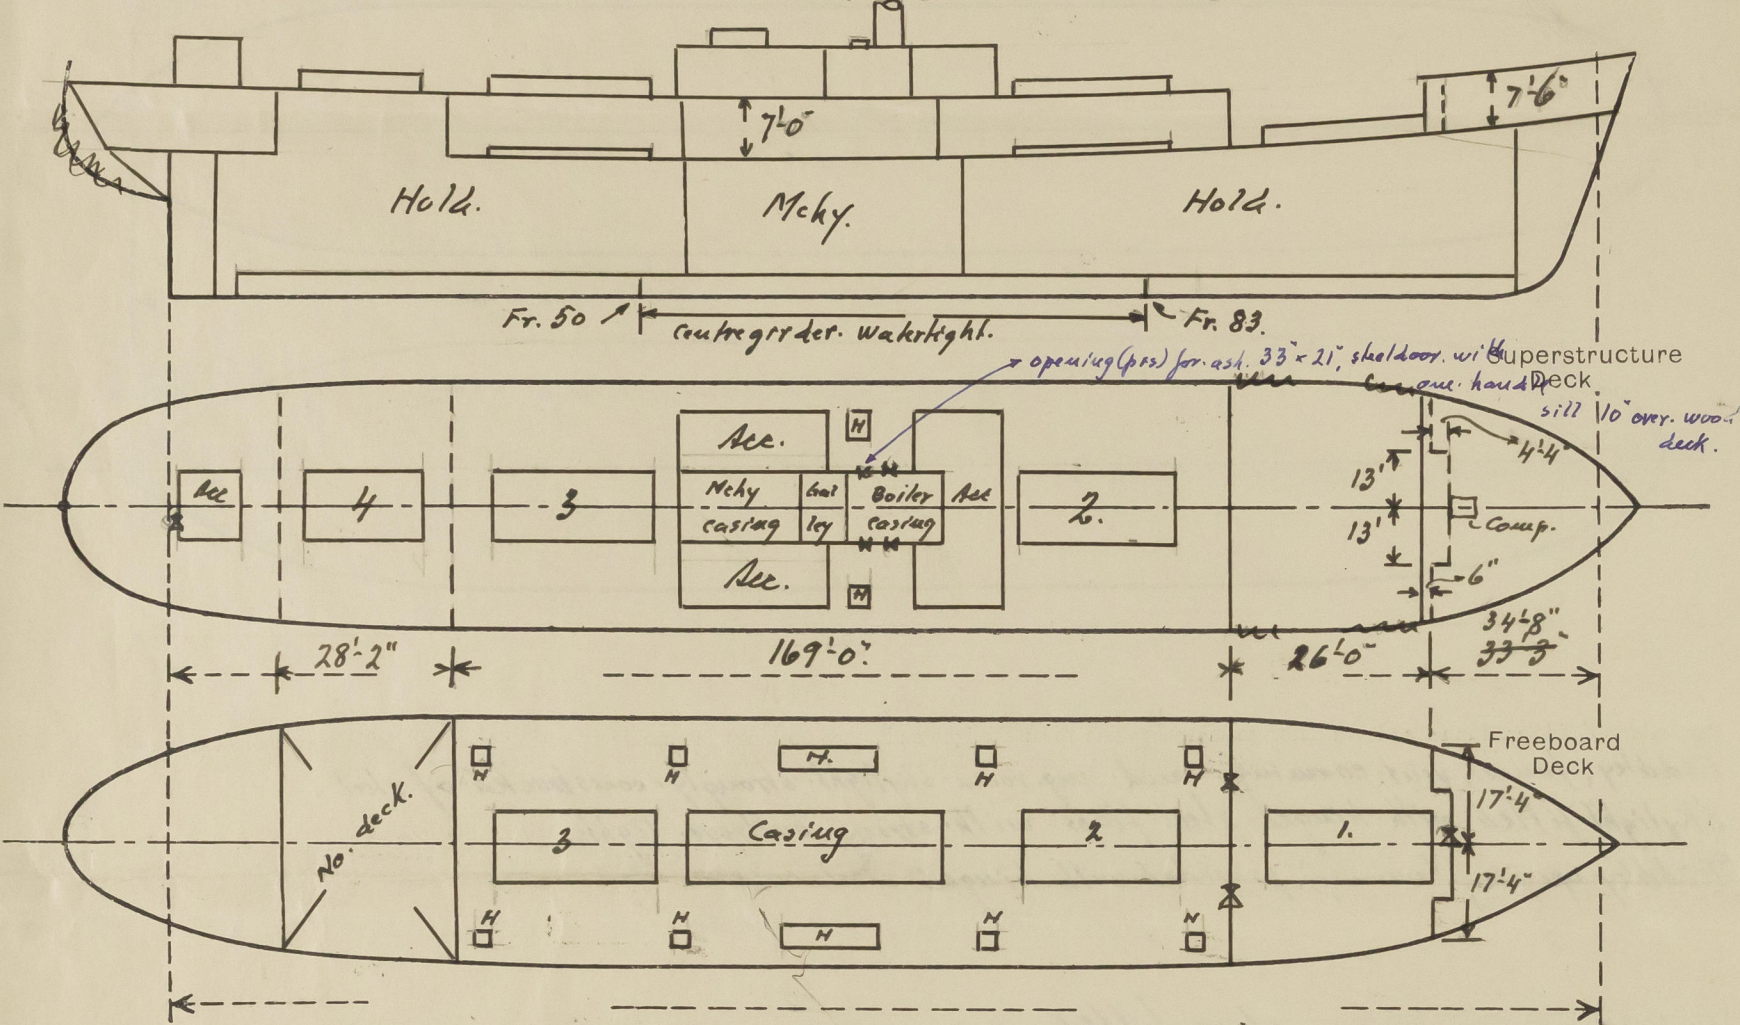 7'-0"
7'-6"
Hold.
Mchy.
Hold.
Fr. 50
Centregirder. Watertight.
Fr. 83.
opening (p+s) for ash. 33" x 21", steeldoor. with
one handle
sill 10" over. wood
deck.
Superstructure
Deck
Acc.
H
4'-4"
Acc
4
3
Mchy
casing
Gal
ley
Boiler
casing
Acc
2.
13'
13'
Comp.
Acc.
H
6"
28'-2"
169'-0"
26'-0"
34'-8"
33'-3"
Freeboard
Deck
H
H
H.
H
H
17'-4"
No. deck.
3
Casing
2
1.
17'-4"
H
H
H
H
H